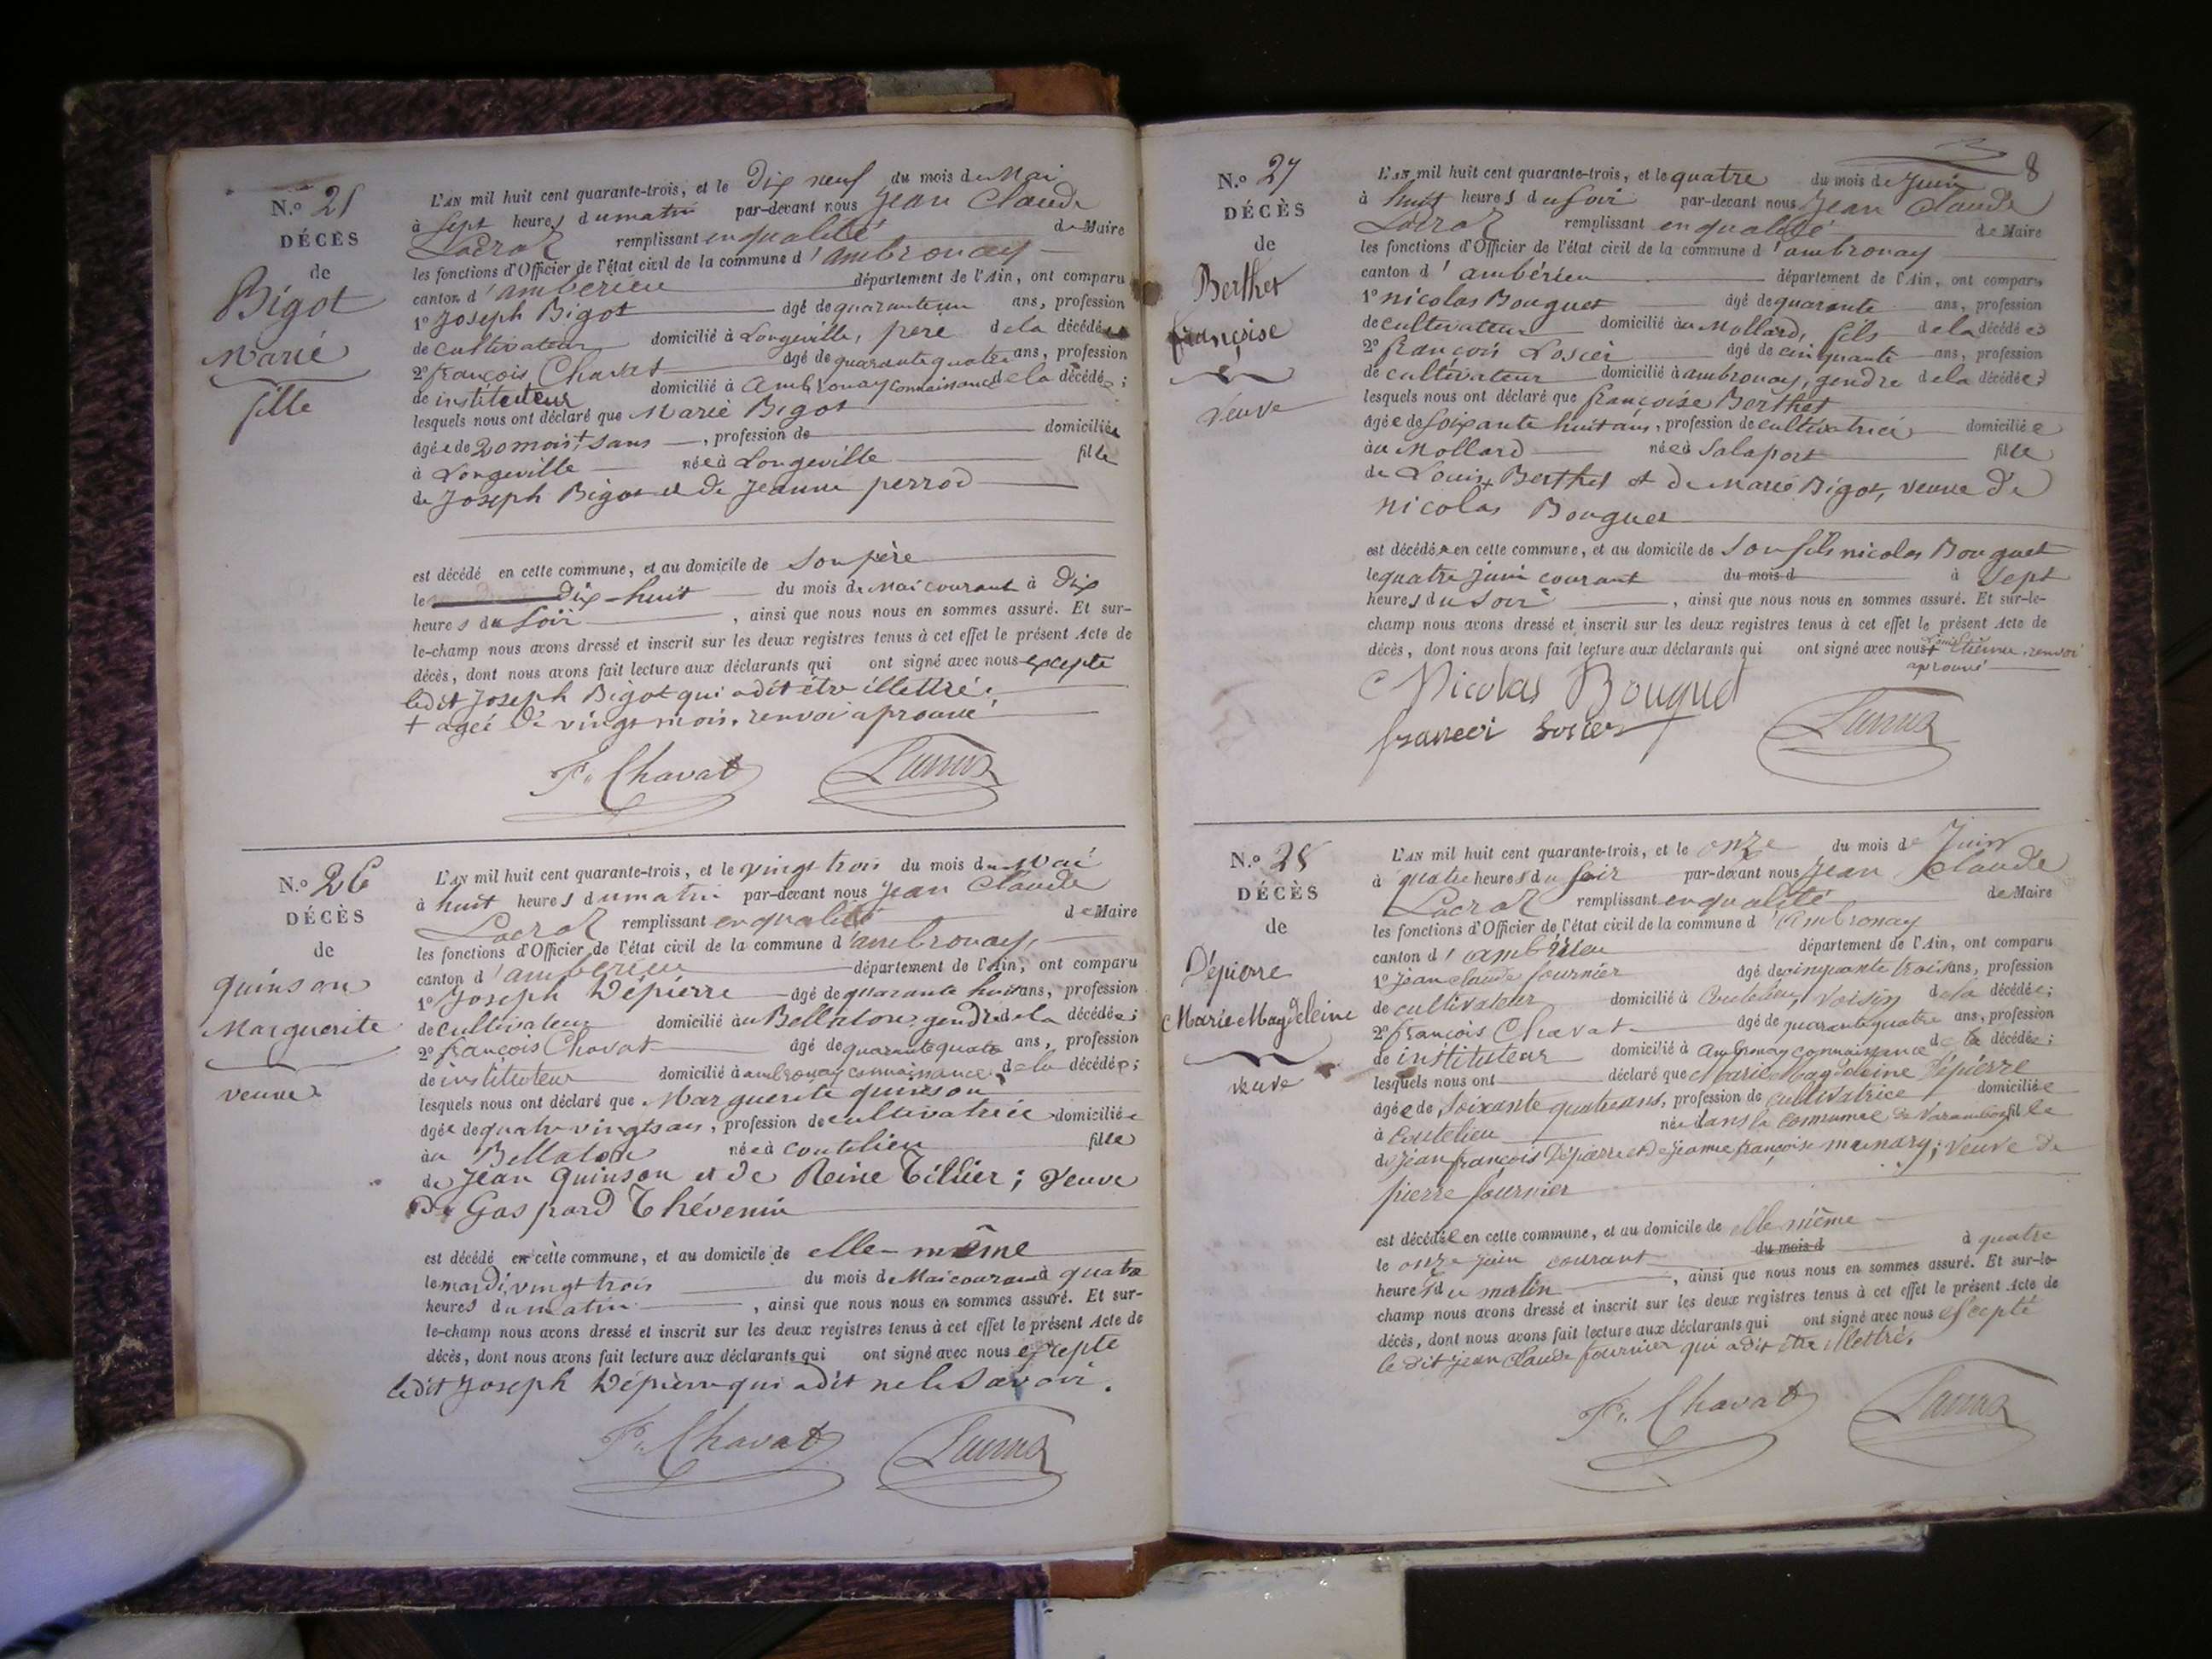 N.o 25
DÉCÈS
de
Bigot
Marie
fille
L'AN mil huit cent quarante-trois, et le Dix neuf du mois de Mai
à Sept heures du matin par-devant nous Jean Claude
remplissant en qualité de Maire
les fonctions d'Officier de l'état civil de la commune d'ambronay
canton d'ambérieu département de l'Ain, ont comparu
1o Joseph Bigot âgé de quarante un ans, profession
de cultivateur domicilié à Longeville, père de la décédée
2o françois Chavat âgé de quarante quatre ans, profession
de instituteur domicilié à Ambronay connaissance de la décédée;
lesquels nous ont déclaré que Marie Bigot
âgée de 20 mois + sans, profession de domiciliée
à Longeville née à Longeville fille
de Joseph Bigot et de Jeanne perrod
est décédé en cette commune, et au domicile de Son père
le dix-huit du mois de Mai courant à dix
heures du Soir, ainsi que nous nous en sommes assuré. Et sur-
le-champ nous avons dressé et inscrit sur les deux registres tenus à cet effet le présent Acte de
décès, dont nous avons fait lecture aux déclarants qui ont signé avec nous excepté
ledit Joseph Bigot qui a dit être illettré.
+ agée de vingt mois. renvoi aprouvé
F. Chavat
N.o 26
DÉCÈS
de
quinson
Marguerite
veuve
L'AN mil huit cent quarante-trois, et le vingt trois du mois de Mai
à huit heures du matin par-devant nous Jean Claude
remplissant en qualité de Maire
les fonctions d'Officier de l'état civil de la commune d'ambronay,
canton d'ambérieu département de l'Ain, ont comparu
1o Joseph Dépierre âgé de quarante huit ans, profession
de cultivateur domicilié au Bellaton, gendre de la décédée;
2o françois Chavat âgé de quarante quatre ans, profession
de instituteur domicilié à ambronay connaissance de la décédée;
lesquels nous ont déclaré que Marguerite quinson
âgée de quatre vingts ans, profession de cultivatrice domiciliée
au Bellaton née à coutelieu fille
de Jean Quinson et de Reine Tillier; Veuve
De Gaspard Thévenin
est décédé en cette commune, et au domicile de elle-même
le mardi, vingt trois du mois de Mai courant à quatre
heures du matin, ainsi que nous nous en sommes assuré. Et sur-
le-champ nous avons dressé et inscrit sur les deux registres tenus à cet effet le présent Acte de
décès, dont nous avons fait lecture aux déclarants qui ont signé avec nous excepté
ledit Joseph Dépierre qui a dit ne le Savoir.
F. Chavat
8
N.o 27
DÉCÈS
de
Berthet
françoise
veuve
L'AN mil huit cent quarante-trois, et le quatre du mois de Juin
à huit heures du soir par-devant nous Jean Claude
remplissant en qualité de Maire
les fonctions d'Officier de l'état civil de la commune d'ambronay
canton d'ambérieu département de l'Ain, ont comparu
1o nicolas Bouguet âgé de quarante ans, profession
de cultivateur domicilié au Mollard, fils de la décédée
2o françois Losier âgé de cinquante ans, profession
de cultivateur domicilié à ambronay, gendre de la décédée;
lesquels nous ont déclaré que françoise Berthet
âgée de soixante huit ans, profession de cultivatrice domiciliée
au Mollard née à Salaport fille
de Louis + Berthet et de Marie Bigot, veuve de
nicolas Bouguet
est décédée en cette commune, et au domicile de Son fils nicolas Bouguet
le quatre juin courant du mois d à Sept
heures du Soir, ainsi que nous nous en sommes assuré. Et sur-le-
champ nous avons dressé et inscrit sur les deux registres tenus à cet effet le présent Acte de
décès, dont nous avons fait lecture aux déclarants qui ont signé avec nous + Etienne, renvoi
aprouvé
Nicolas Bouguet
N.o 28
DÉCÈS
de
Dépierre
Marie Magdeleine
veuve
L'AN mil huit cent quarante-trois, et le onze du mois de Juin
à quatre heures du soir par-devant nous Jean Claude
remplissant en qualité de Maire
les fonctions d'Officier de l'état civil de la commune d'Ambronay
canton d'ambérieu département de l'Ain, ont comparu
1o jean claude fournier âgé de cinquante trois ans, profession
de cultivateur domicilié à Coutelieu, voisin de la décédée;
2o françois Chavat âgé de quarante quatre ans, profession
de instituteur domicilié à Ambronay connaissance de la décédée;
lesquels nous ont déclaré que Marie Magdeleine Dépierre
âgée de soixante quatre ans, profession de cultivatrice domiciliée
à coutelieu née dans la commune de Varambon fille
de jean françois Dépierre et de jeanne françoise; veuve de
pierre fournier
est décédée en cette commune, et au domicile de elle même
le onze juin courant du mois d à quatre
heures du matin, ainsi que nous nous en sommes assuré. Et sur-le-
champ nous avons dressé et inscrit sur les deux registres tenus à cet effet le présent Acte de
décès, dont nous avons fait lecture aux déclarants qui ont signé avec nous excepté
le dit jean claude fournier qui a dit être illettré.
F. Chavat